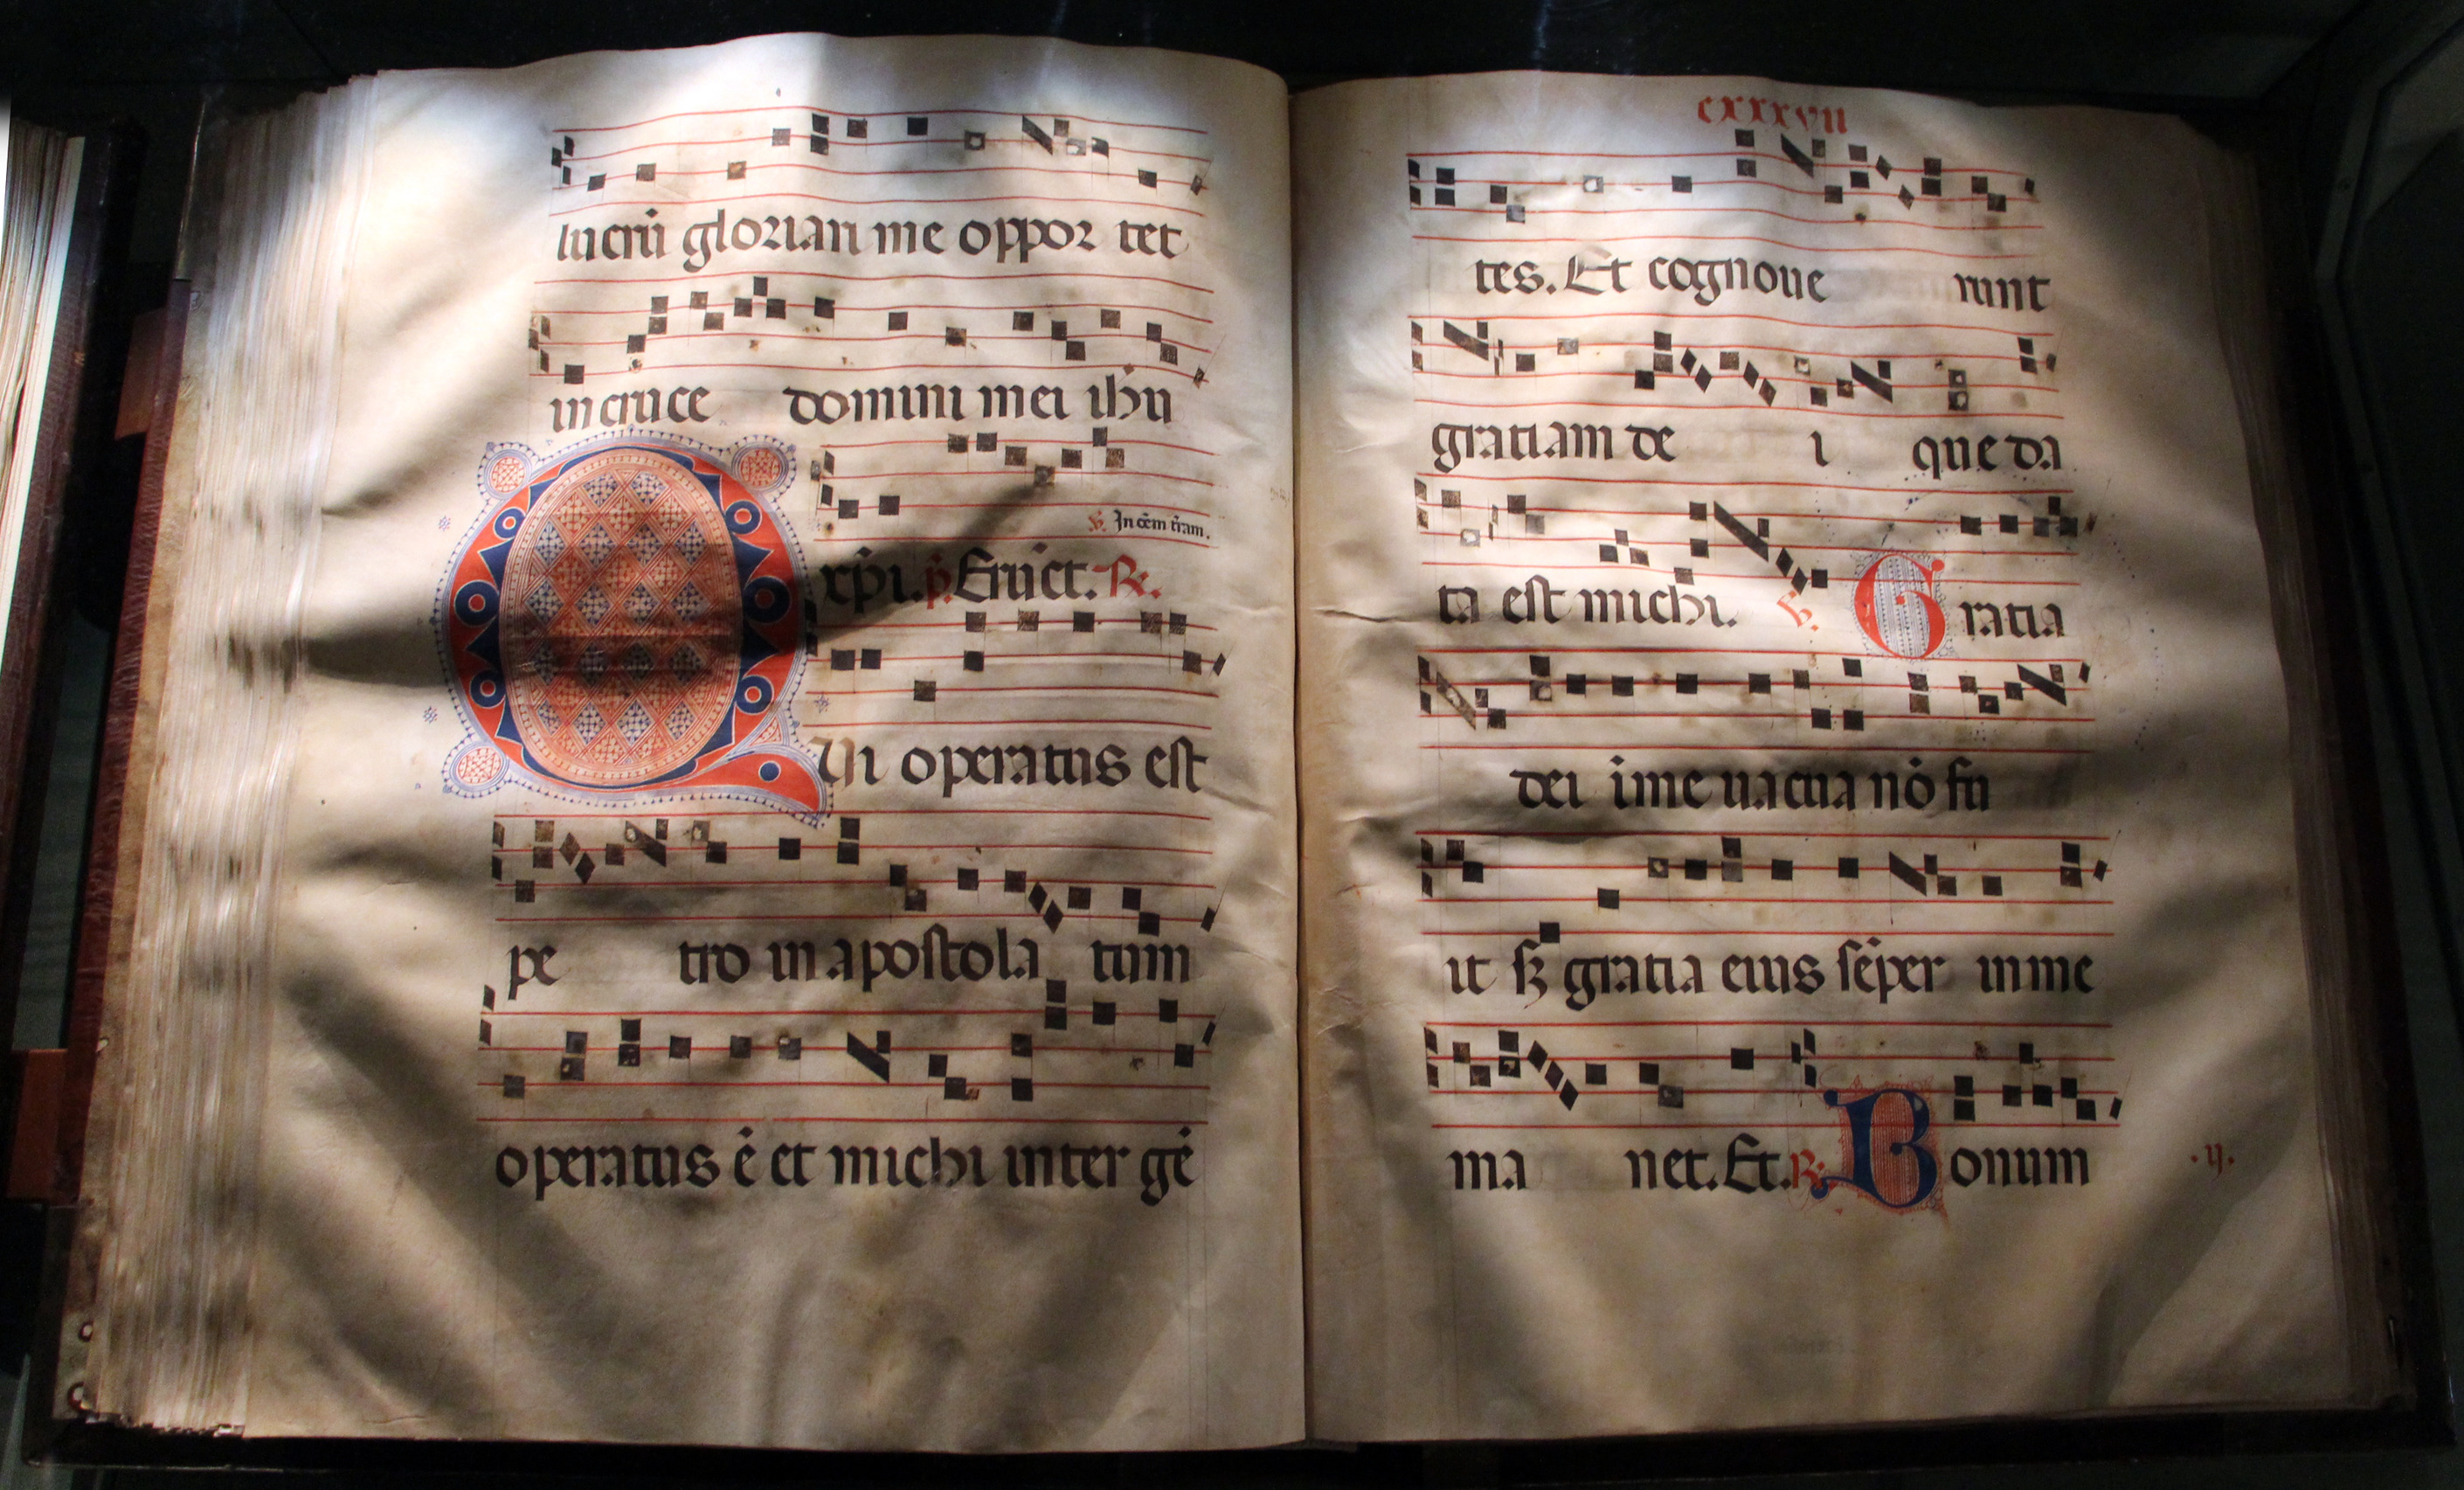 lucrū glorian me oppor tet
in cruce domini mei ihu
℣. In oēm t̄ram.
xp̄i. p̄. Eruct. ℟.
QUi operatus est
pe tro in apostola tum
operatus ē et michi inter gē
cxxxvii
tes. Et cognoue runt
gratiam de i que da
ta est michi. ℣. Gratia
dei ī me uacua nō fu
it sꝫ gratia eius sēper in me
ma net. Et. ℟. Bonum
.ij.